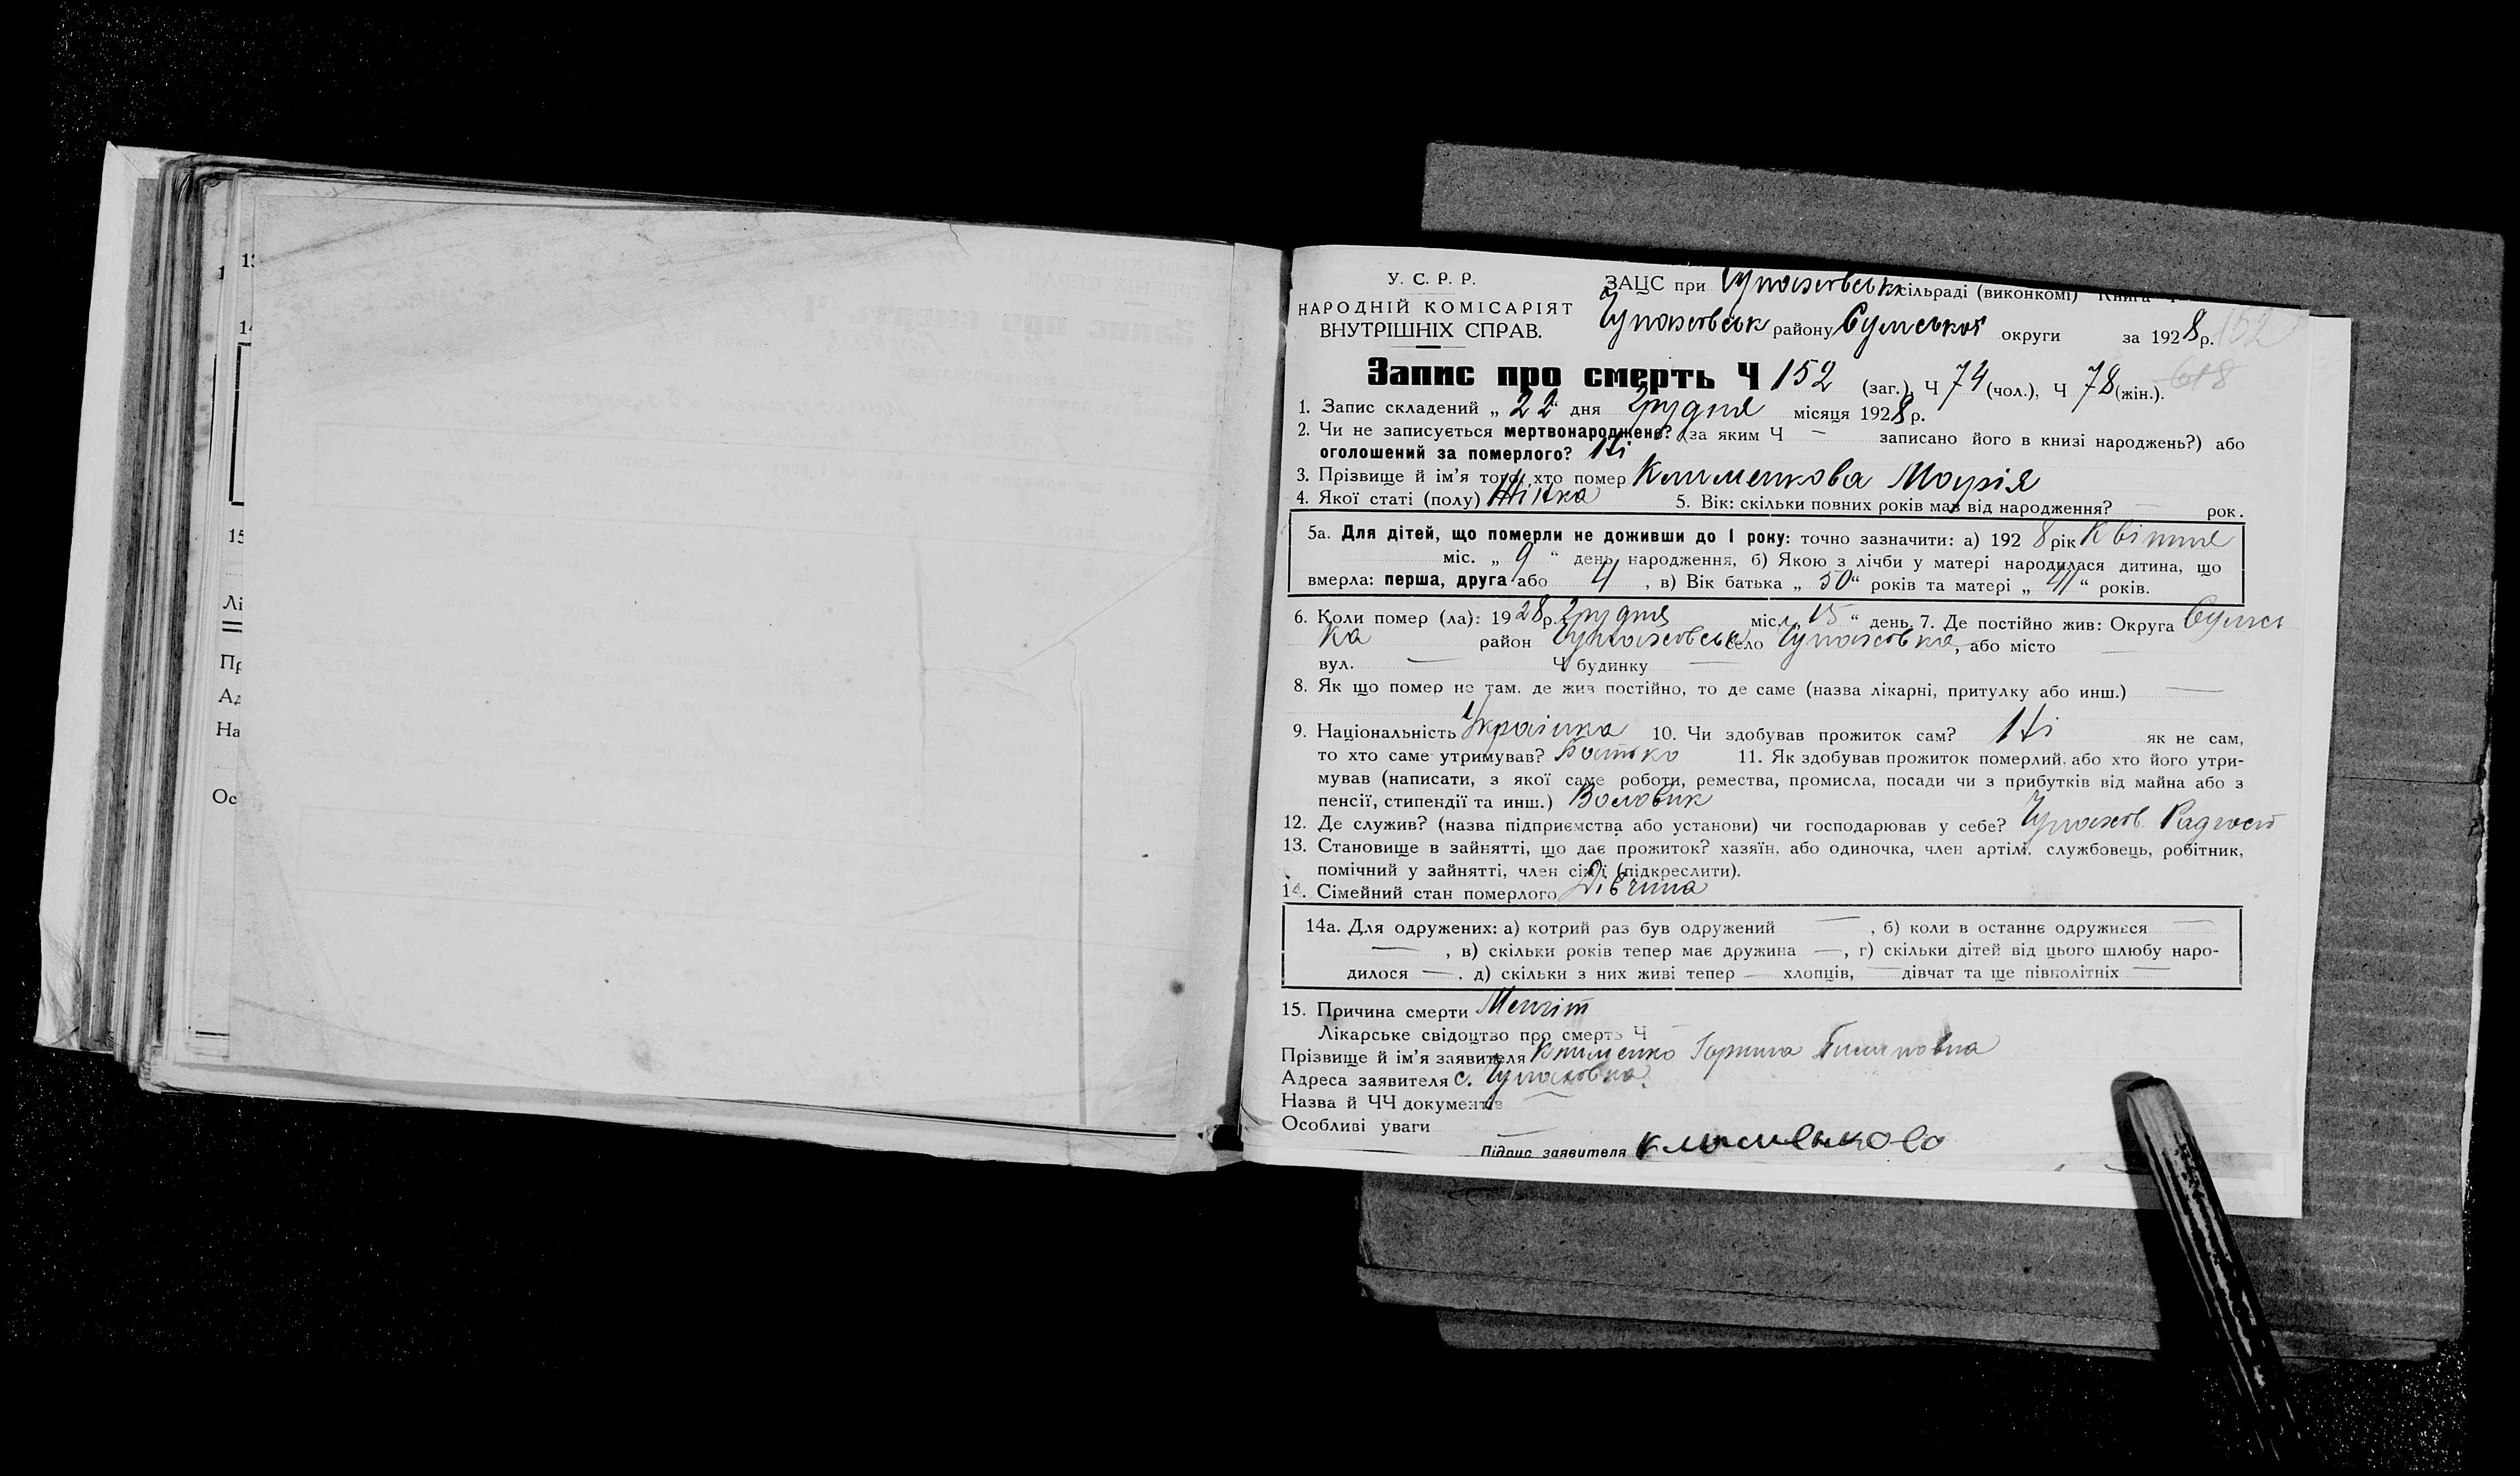 У. С. Р. Р.
НАРОДНІЙ КОМІСАРІЯТ
ВНУТРІШНІХ СПРАВ.
ЗАЦС при Чупахівськ сільраді (виконкомі) Книга
Чупахівськ району Сумської округи за 1928 р.
152
618
Запис про смерть Ч 152 (заг.), Ч 74 (чол.), Ч 78 (жін.).
1. Запис складений „ 22 “ дня Грудня місяця 1928 р.
2. Чи не записується мертвонароджене? (за яким Ч — записано його в книзі народжень?) або
оголошений за померлого? Ні
3. Прізвище й ім'я того, хто помер Клименкова Марія
4. Якої статі (полу) Жінка 5. Вік: скільки повних років мав від народження? — рок.
5а. Для дітей, що померли не доживши до 1 року: точно зазначити: а) 192 8 рік Квітня
міс. „ 9 “ день народження, б) Якою з лічби у матері народилася дитина, що
вмерла: перша, друга або 4 , в) Вік батька „ 50 “ років та матері „ 41 “ років.
6. Коли помер (ла): 19 28 р. Грудня міс. „ 15 “ день. 7. Де постійно жив: Округа Сумсь
ка район Чупахівськ село Чупахівка, або місто —
вул. — Ч будинку —
8. Як що помер не там, де жив постійно, то де саме (назва лікарні, притулку або инш.) —
9. Національність Українка 10. Чи здобував прожиток сам? Ні як не сам,
то хто саме утримував? Батько 11. Як здобував прожиток померлий, або хто його утри-
мував (написати, з якої саме роботи, ремества, промисла, посади чи з прибутків від майна або з
пенсії, стипендії та инш.) Воловик
12. Де служив? (назва підприємства або установи) чи господарював у себе? Чупахов. Радгосп
13. Становище в зайнятті, що дає прожиток? хазяїн, або одиночка, член артілі, службовець, робітник,
помічний у зайнятті, член сім'ї (підкреслити).
14. Сімейний стан померлого Дівчина
14а. Для одружених: а) котрий раз був одружений — , б) коли в останнє одружився —
— , в) скільки років тепер має дружина —, г) скільки дітей від цього шлюбу наро-
дилося — , д) скільки з них живі тепер — хлопців, — дівчат та ще півполітніх —
15. Причина смерти Менгіт
Лікарське свідоцтво про смерть Ч —
Прізвище й ім'я заявителя Клименко
Адреса заявителя с. Чупаховка.
Назва й ЧЧ документів —
Особливі уваги —
Підпис заявителя
13
14
15
Лі
Пр
Ад
На
Ос